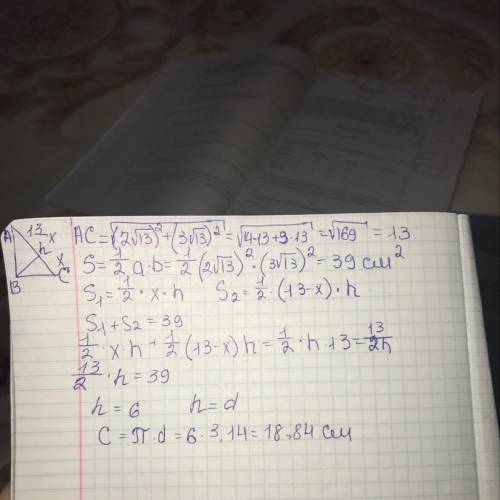 A 13-x
h x
B C
AC = √(2√13)² + (3√13)² = √4·13+9·13 = √169 = 13
S = 1/2 a·b = 1/2 (2√13)² · (3√13)² = 39 см²
S₁ = 1/2 · x · h S₂ = 1/2 · (13-x) · h
S₁ + S₂ = 39
1/2 · x h + 1/2 (13-x) h = 1/2 · h · 13 = 13/2h
13/2 · h = 39
h = 6 h = d
C = π · d = 6 · 3,14 = 18,84 см